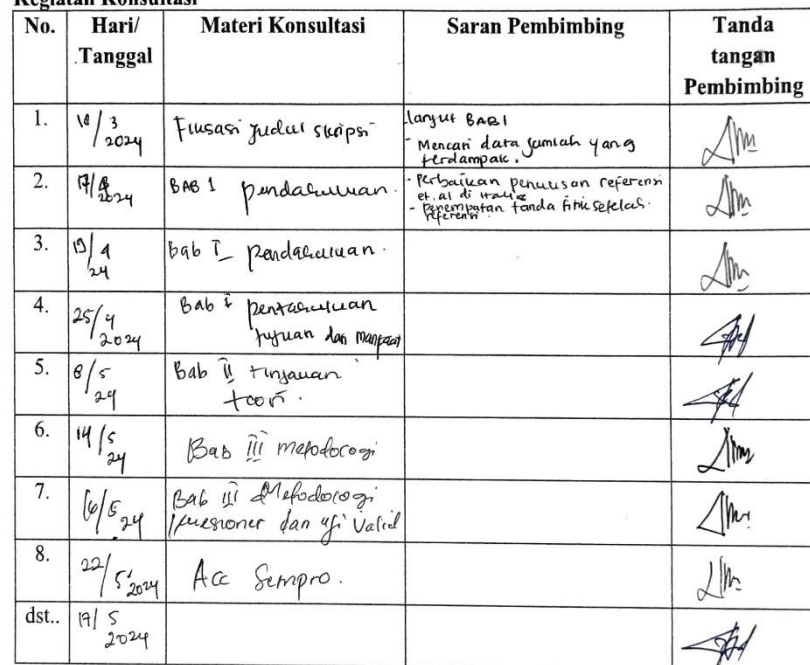 Kegiatan Konsultasi
No. Hari/ Tanggal Materi Konsultasi Saran Pembimbing Tanda tangan Pembimbing
1. 18/3 2024 judul skripsi lanjut BAB 1
- Mencari data jumlah yang
terdampak.
2. 17/4 2024 BAB 1 pendahuluan. - Perbaikan penulisan referensi
et.al di italic
- penempatan tanda titik setelah
referensi.
3. 19/4 24 bab I pendahuluan.
4. 25/4 2024 Bab I pendahuluan
tujuan dan manfaat
5. 8/5 24 Bab II tinjauan
teori.
6. 14/5 24 Bab III metodologi
7. 16/5 24 Bab III Metodologi
kuesioner dan uji valid
8. 22/5 2024 Acc Sempro.
dst.. 5 2024